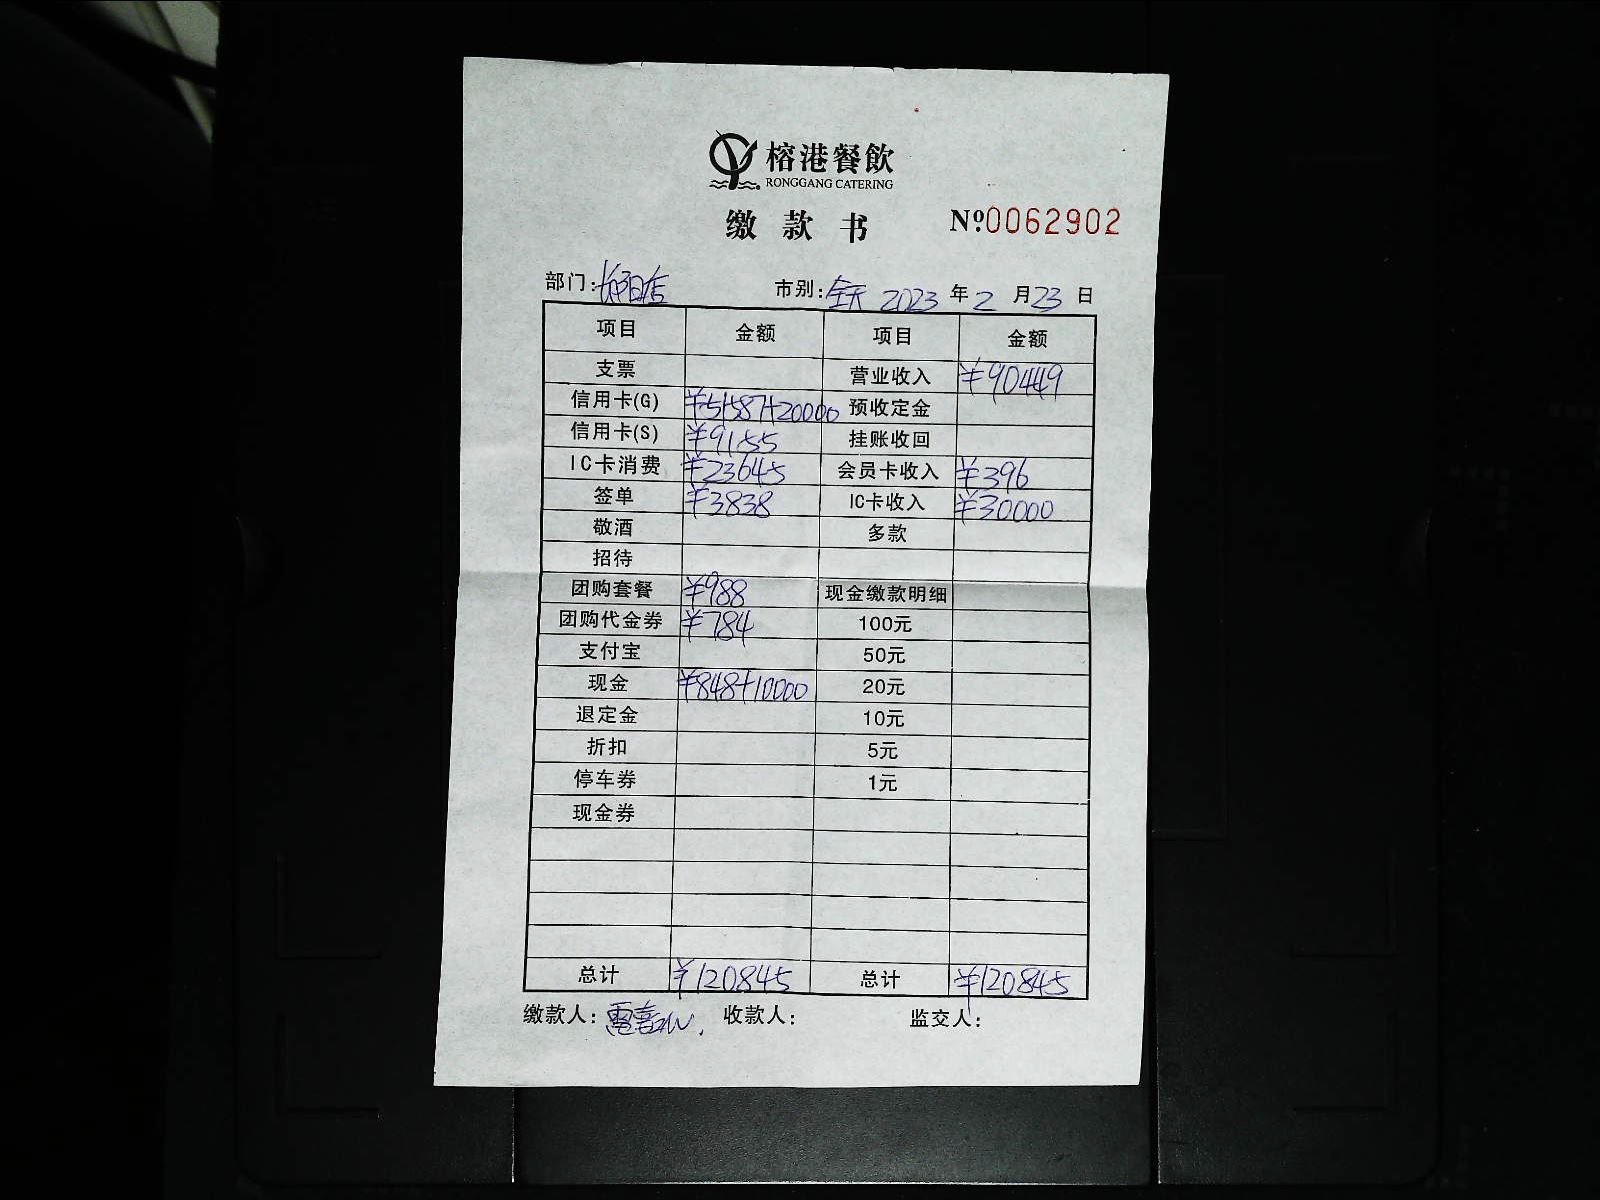 榕港餐飲
RONGGANG CATERING
缴款书 №0062902
部门: 市别:全天 2023年2月23日
项目 金额 项目 金额
支票 营业收入 ¥90449
信用卡(G) ¥51587+20000 预收定金
信用卡(S) ¥9155 挂账收回
IC卡消费 ¥23645 会员卡收入 ¥396
签单 ¥3838 IC卡收入 ¥30000
敬酒 多款
招待
团购套餐 ¥988 现金缴款明细
团购代金券 ¥784 100元
支付宝 50元
现金 ¥848+10000 20元
退定金 10元
折扣 5元
停车券 1元
现金券
总计 ¥120845 总计 ¥120845
缴款人: 收款人: 监交人: